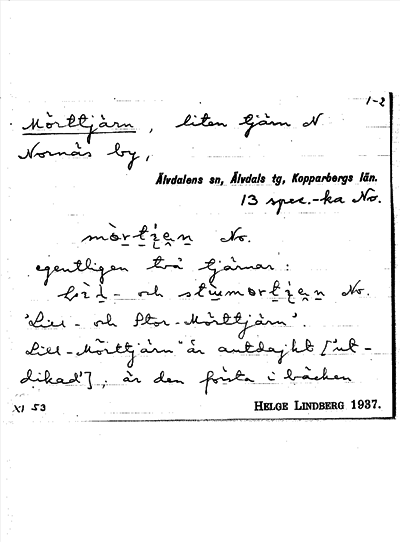 1-2
Mörttjärn, liten tjärn N
Nornäs by,
Älvdalens sn, Älvdals tg, Kopparbergs län.
13 spec.-ka No.
No.
egentligen två tjärnar:
- och No.
'Lill- och Stor-Mörttjärn'.
Lill-Mörttjärn är autdajkt ['ut-
dikad'], är den första i bäcken
XI 53
HELGE LINDBERG 1937.